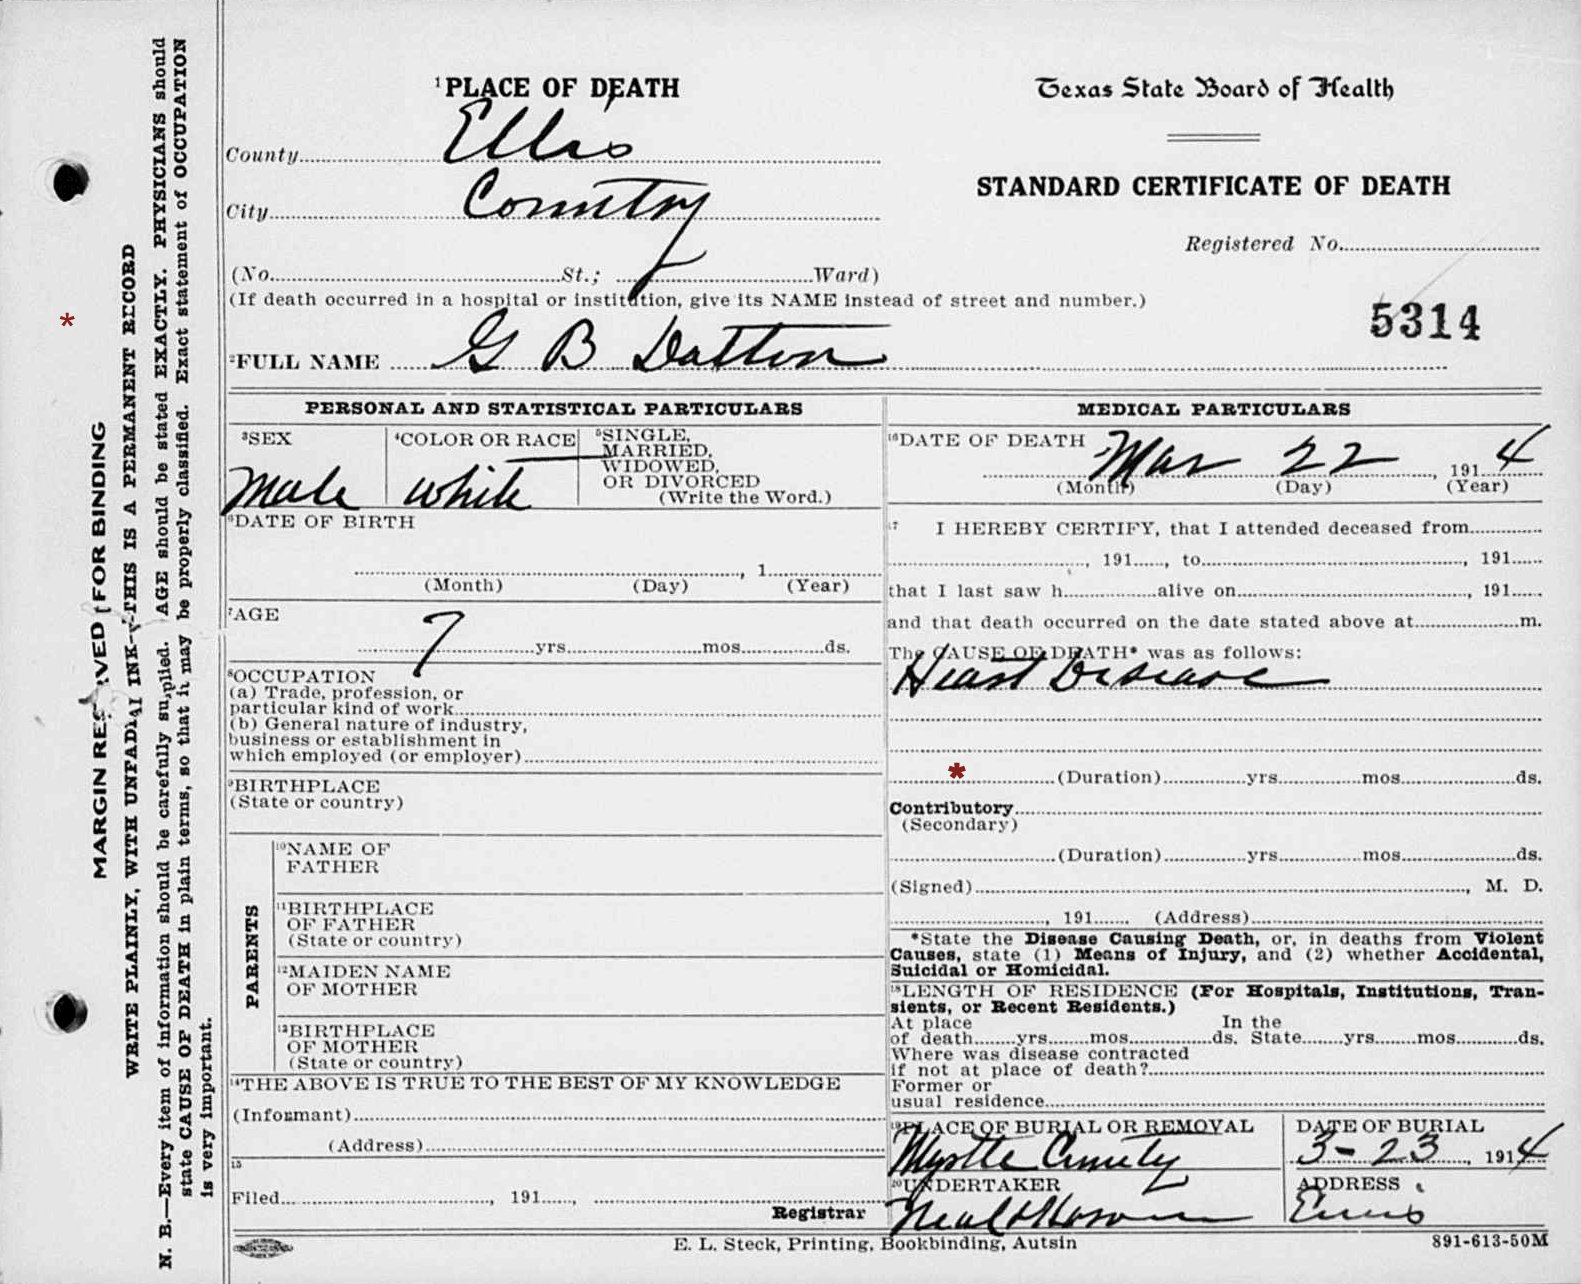 ¹PLACE OF DEATH
County Ellis
City Country
(No. St.; Ward)
(If death occurred in a hospital or institution, give its NAME instead of street and number.)
²FULL NAME G B Datton
Texas State Board of Health
STANDARD CERTIFICATE OF DEATH
Registered No.
5314
PERSONAL AND STATISTICAL PARTICULARS
³SEX
Male
⁴COLOR OR RACE
White
⁵SINGLE,
MARRIED,
WIDOWED,
OR DIVORCED
(Write the Word.)
⁶DATE OF BIRTH
, 1
(Month) (Day) (Year)
⁷AGE
7 yrs. mos. ds.
⁸OCCUPATION
(a) Trade, profession, or
particular kind of work
(b) General nature of industry,
business or establishment in
which employed (or employer)
⁹BIRTHPLACE
(State or country)
PARENTS
¹⁰NAME OF
FATHER
¹¹BIRTHPLACE
OF FATHER
(State or country)
¹²MAIDEN NAME
OF MOTHER
¹³BIRTHPLACE
OF MOTHER
(State or country)
¹⁴THE ABOVE IS TRUE TO THE BEST OF MY KNOWLEDGE
(Informant)
(Address)
15
Filed , 191 ,
Registrar
MEDICAL PARTICULARS
¹⁶DATE OF DEATH
Mar 22, 1914
(Month) (Day) (Year)
¹⁷ I HEREBY CERTIFY, that I attended deceased from
, 191 , to , 191
that I last saw h alive on , 191
and that death occurred on the date stated above at m.
The CAUSE OF DEATH* was as follows:
Heart Disease
* (Duration) yrs. mos. ds.
Contributory
(Secondary)
(Duration) yrs. mos. ds.
(Signed) , M. D.
, 191 (Address)
*State the Disease Causing Death, or, in deaths from Violent
Causes, state (1) Means of Injury, and (2) whether Accidental,
Suicidal or Homicidal.
¹⁸LENGTH OF RESIDENCE (For Hospitals, Institutions, Tran-
sients, or Recent Residents.)
At place In the
of death yrs. mos. ds. State yrs. mos. ds.
Where was disease contracted
if not at place of death?
Former or
usual residence
¹⁹PLACE OF BURIAL OR REMOVAL
Myrtle Cemetery
DATE OF BURIAL
3-23, 1914
²⁰UNDERTAKER
Neal
ADDRESS
Ennis
E. L. Steck, Printing, Bookbinding, Autsin
891-613-50M
*
MARGIN RESERVED FOR BINDING
WRITE PLAINLY, WITH UNFADING INK—THIS IS A PERMANENT RECORD
N. B.—Every item of information should be carefully supplied. AGE should be stated EXACTLY. PHYSICIANS should
state CAUSE OF DEATH in plain terms, so that it may be properly classified. Exact statement of OCCUPATION
is very important.